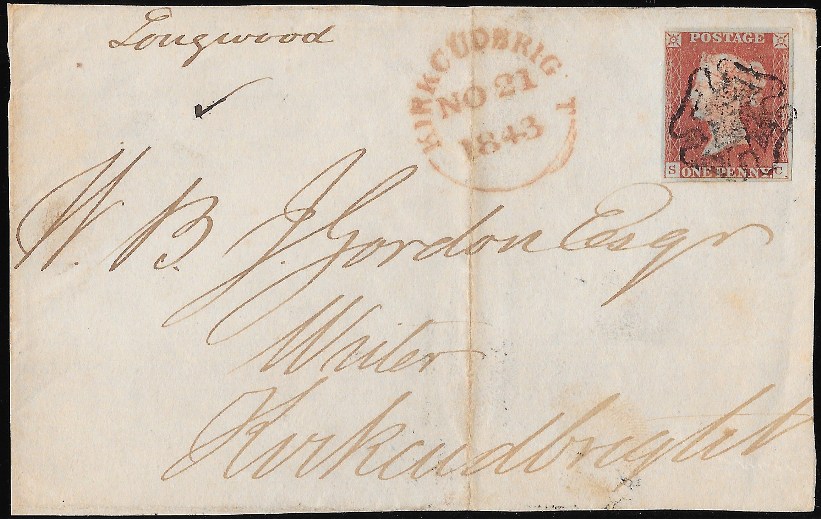 Longwood
KIRKCUDBRIG T
NO 21
1843
POSTAGE
ONE PENNY
S C
W. B. J. Gordon Esqr
Writer
Kirkcudbright